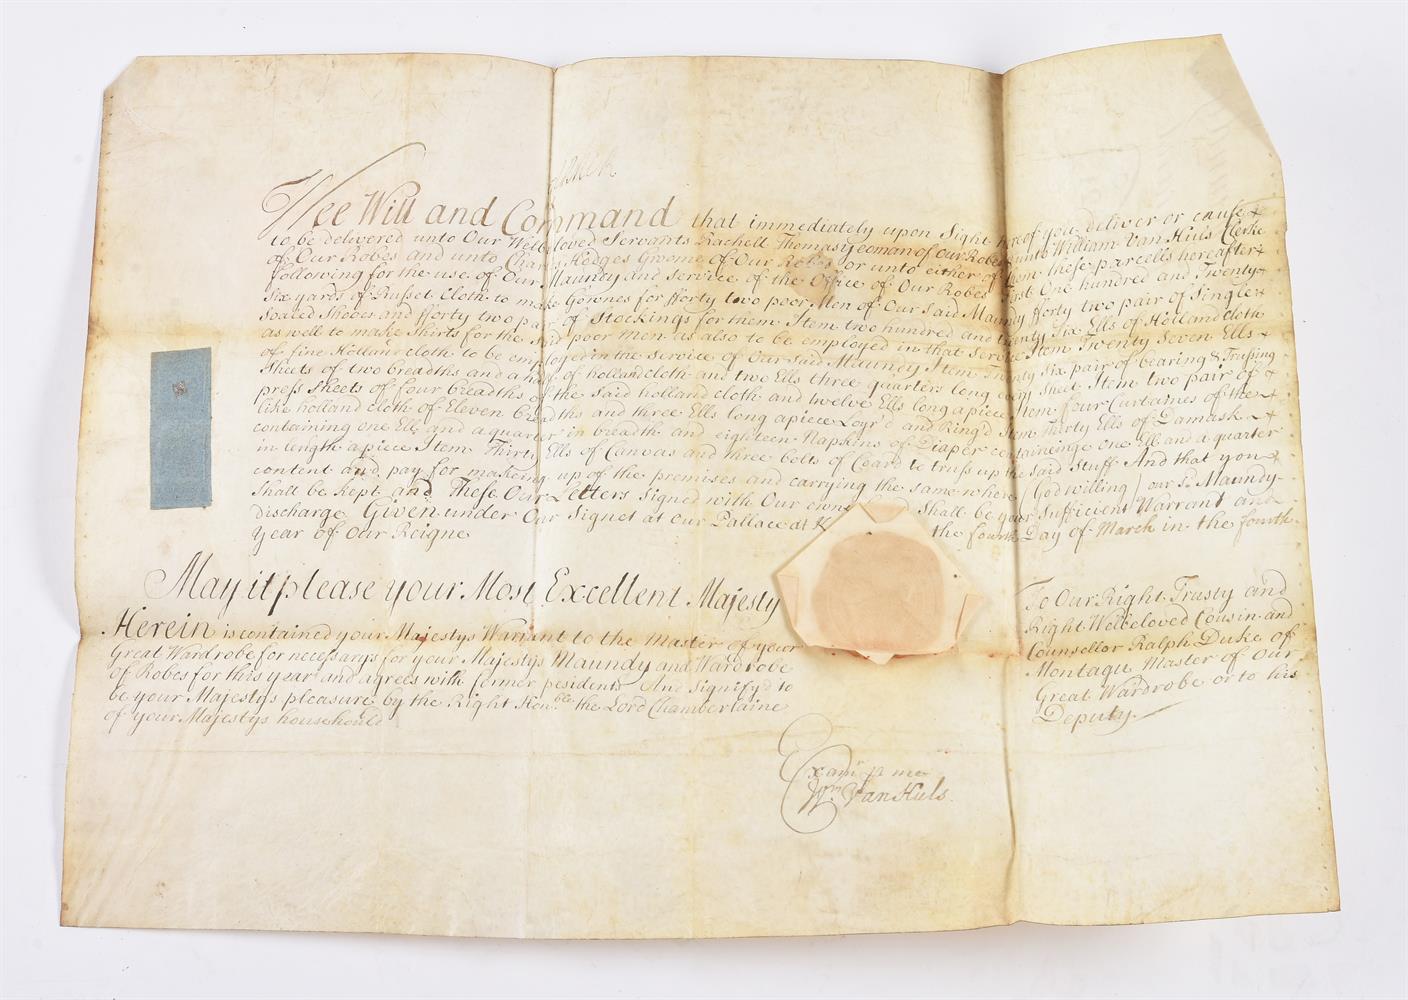 Wee Will and Command that immediately upon Sight hereof you deliver or cause
to be delivered unto Our Welbeloved Servants Rachell Thomas yeoman of Our Robes unto William Van Huls Clerke
of Our Robes and unto Charles Hedges Groome of Our Robes or unto either of them these parcells hereafter
following for the use of Our Maundy and service of the Office of Our Robes First One hundred and Twenty
Six yards of Russet Cloth to make Gownes for fforty two poor Men of Our Said Maundy fforty two pair of Single
Soaled Shooes and fforty two pair of Stockings for them Item two hundred and twenty Six Ells of Holland cloth
as well to make Shirts for the said poor men as also to be employed in that Service Item Twenty Seven Ells
of fine Holland cloth to be employed in the service of Our said Maundy Item Twenty Six pair of bearing & Trussing
Sheets of two breadths and a half of holland cloth and two Ells three quarters long every Sheet Item two pair of
press sheets of four breadths of the said holland cloth and twelve Ells long a piece Item four Curtaines of the
like holland cloth of Eleven breadths and three Ells long a piece Loyr'd and Ring'd Item Thirty Ells of Damask
containing one Ell and a quarter in breadth and eighteen Napkins of Diaper containeinge one Ell and a quarter
in length a piece Item Thirty Ells of Canvas and three bolts of Coard to truss up the said Stuff And that you
content and pay for making up of the premises and carrying the same where (God willing) our Sd. Maundy
Shall be kept and These Our Letters Signed with Our owne hand Shall be your Sufficient Warrant and
Discharge Given under Our Signet at Our Pallace at the fourth Day of March in the fourth
Year of Our Reigne
May it please your Most Excellent Majesty
Herein is contained your Majestys Warrant to the Master of your
Great Wardrobe for necessarys for your Majestys Maundy and Wardrobe
of Robes for this year and agrees with former presidents And signify'd to
be your Majestys pleasure by the Right Hon.ble the Lord Chamberlaine
of your Majestys househould
To Our Right Trusty and
Right Welbeloved Cousin and
Counsellor Ralph Duke of
Montagu Master of Our
Great Wardrobe or to his
Deputy.
Examr. p me
Wm. Van Huls.